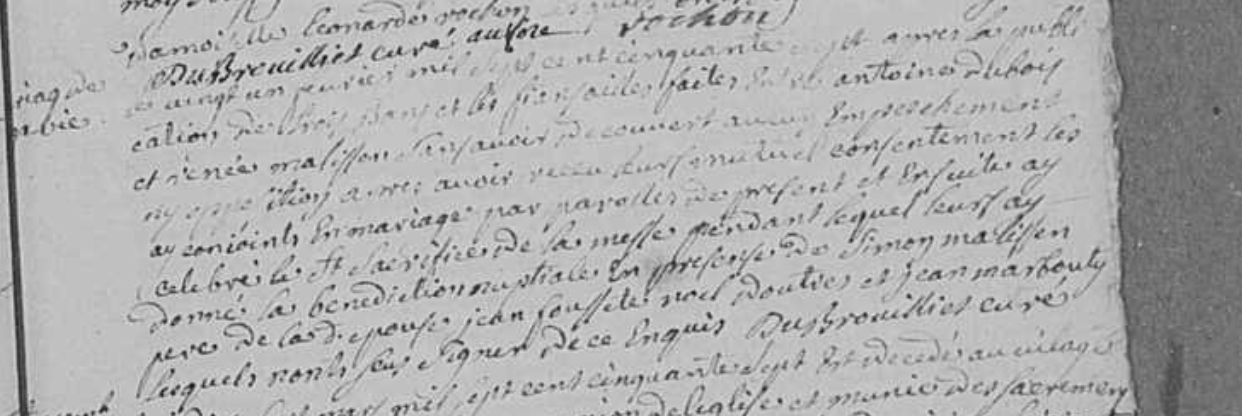 damoiselle leonarde rochon
DusBrouilliet curé rochon
riage de
le vingt un feuvrier mil sept cent cinquante sept apres la publi
cation de trois bans et les fiansailles faites entre antoine dubois
et renée malissen sans avoir decouvert aucun Empeschement
ny opposition apres avoir receu leurs mutuel consentement les
ay conioints En mariage par parolles de present et Ensuite ay
celebré le St sacrifice de la messe pendant lequel leurs ay
donné la benediction nuptiale En presense de Simon malissen
pere de la d epouse jean foussete noel doutres et jean marbouty
lesquels nont sçeu signer de ce Enquis DusBrouilliet curé
mars mil sept cent cinquante sept Est decedé au vilage
de leglise et munie des sacremens